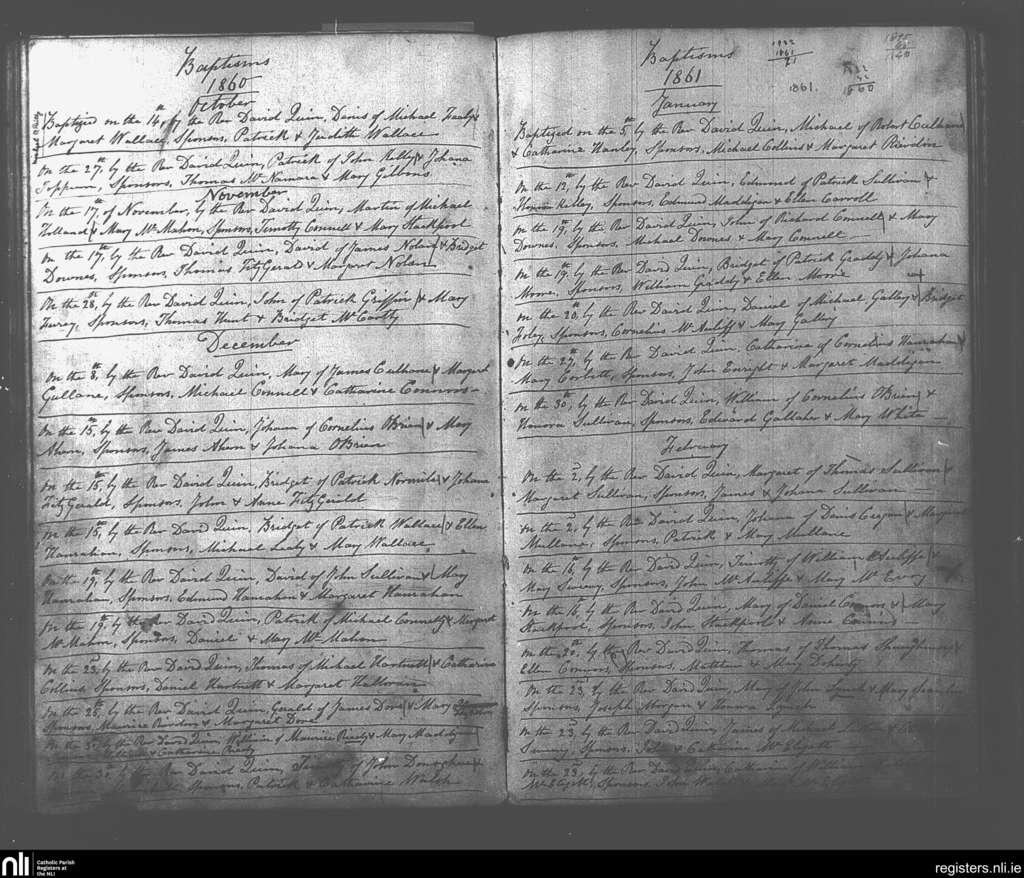 Baptisms
1860
October
Baptized on the 14th, by the Rev David Quin, Denis of Michael Healy &
Margaret Wallace, Sponsors, Patrick & Judith Wallace
On the 27th, by the Rev David Quin, Patrick of John Kelly & Johana
Sponsors, Thomas McNamara & Mary Gibbons
November
On the 17th of November, by the Rev David Quin, Martin of Michael
Holland & Mary McMahon, Sponsors, Timothy Connell & Mary Stackpool
On the 19th, by the Rev David Quin, David of James Nolan & Bridget
Downes, Sponsors, Thomas FitzGerald & Margaret Nolan
On the 28th, by the Rev David Quin, John of Patrick Griffin & Mary
Furey, Sponsors, Thomas Hunt & Bridget McCarthy
December
On the 8th, by the Rev David Quin, Mary of James Culhane & Margaret
Gullane, Sponsors, Michael Connell & Catharine Connors
On the 15th, by the Rev David Quin, Johana of Cornelius OBrien & Mary
Ahern, Sponsors, James Ahern & Johana OBrien
On the 15th, by the Rev David Quin, Bridget of Patrick Normile & Johana
FitzGerald, Sponsors, John & Anne FitzGerald
On the 15th, by the Rev David Quin, Bridget of Patrick Wallace & Ellen
Hanrahan, Sponsors, Michael Healy & Mary Wallace
On the 19th, by the Rev David Quin, David of John Sullivan & Mary
Hanrahan, Sponsors, Edmund Hanrahan & Margaret Hanrahan
On the 19th, by the Rev David Quin, Patrick of Michael Connell & Margaret
McMahon, Sponsors, Daniel & Mary McMahon
On the 23rd, by the Rev David Quin, Thomas of Michael Hartnett & Catharine
Collins, Sponsors, Daniel Hartnett & Margaret Halloran
On the 25th, by the Rev David Quin, Gerald of James Dore & Mary
Sponsors, Maurice & Margaret Dore
by the Rev David Quin, William of Maurice Reidy & Mary Maddigan
& Catharine Reidy
by the Rev David Quin, of John Donoghue &
Sponsors, Patrick & Catharine Walsh
Baptisms
1861
January
1922
1861
1861.
Baptized on the 5th, by the Rev David Quin, Michael of Robert Culhane
& Catharine Hanley, Sponsors, Michael Collins & Margaret Riordan
On the 12th, by the Rev David Quin, Edmund of Patrick Sullivan &
Honora Kelley, Sponsors, Edmund Maddigan & Ellen Carroll
On the 19th, by the Rev David Quin, John of Richard Connell & Mary
Downes, Sponsors, Michael Downes & Mary Connell
On the 19th, by the Rev David Quin, Bridget of Patrick Graddy & Johana
Moore, Sponsors, William Graddy & Ellen Moore
On the 20th, by the Rev David Quin, Daniel of Michael Galley & Bridget
Foley, Sponsors, Cornelius McAuliff & Mary Galley
On the 27th, by the Rev David Quin, Catharine of Cornelius Hanrahan &
Mary Corbett, Sponsors, John Enright & Margaret Maddigan
On the 30th, by the Rev David Quin, William of Cornelius OBrien &
Honora Sullivan, Sponsors, Edward Gallaher & Mary White
February
On the 2nd, by the Rev David Quin, Margaret of Thomas Sullivan &
Margaret Sullivan, Sponsors, James & Johana Sullivan
On the 2nd, by the Rev David Quin, Johana of David Cregan & Margaret
Mullane, Sponsors, Patrick & Mary Mullane
On the 16th, by the Rev David Quin, Timothy of William McAuliffe &
Mary Sponsors, John McAuliffe & Mary
On the 16th, by the Rev David Quin, Mary of Daniel Connors & Mary
Stackpool, Sponsors, John Stackpool & Anne Connors
On the 20th, by the Rev David Quin, Thomas of Thomas Shaughnessy &
Ellen Connors, Sponsors, Matthew & Mary Doherty
On the 23rd, by the Rev David Quin, Mary of John Lynch & Mary
Sponsors, Joseph Morgan & Honora Lynch
On the 23rd, by the Rev David Quin, James of Michael &
Sponsors, & Catharine McElgott
On the 23rd, by the Rev David Quin, Catharine of William
McElgott, Sponsors, John
nli
Catholic Parish
Registers at
the NLI
registers.nli.ie